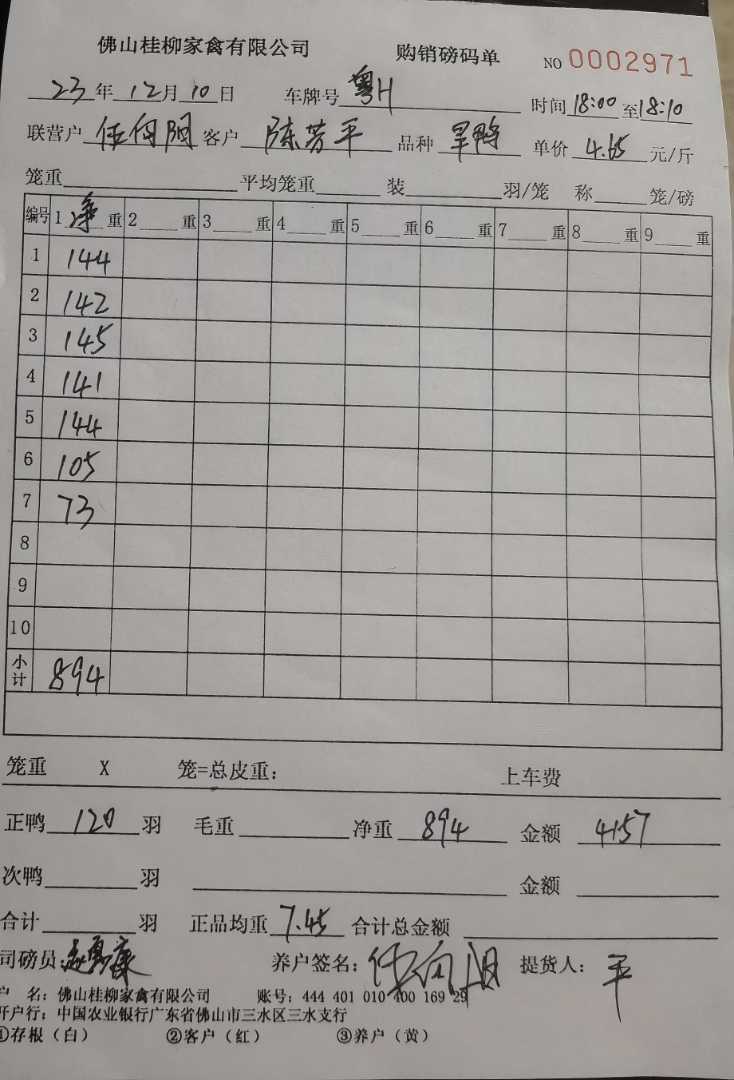 佛山桂柳家禽有限公司 购销磅码单 NO 0002971
23年12月10日 车牌号 粤H 时间18:00至18:10
联营户 伍向阳 客户 陈芳平 品种 旱鸭 单价 4.65 元/斤
笼重 平均笼重 装 羽/笼 称 笼/磅
编号 1 净 重 2 重 3 重 4 重 5 重 6 重 7 重 8 重 9 重
1 144
2 142
3 145
4 141
5 144
6 105
7 73
8
9
10
小计 894
笼重 X 笼=总皮重: 上车费
正鸭 120 羽 毛重 净重 894 金额 4157
次鸭 羽 金额
合计 羽 正品均重 7.45 合计总金额
司磅员: 养户签名: 伍向阳 提货人: 平
户 名: 佛山桂柳家禽有限公司 账号: 444 401 010 400 169 29
开户行: 中国农业银行广东省佛山市三水区三水支行
①存根(白) ②客户(红) ③养户(黄)